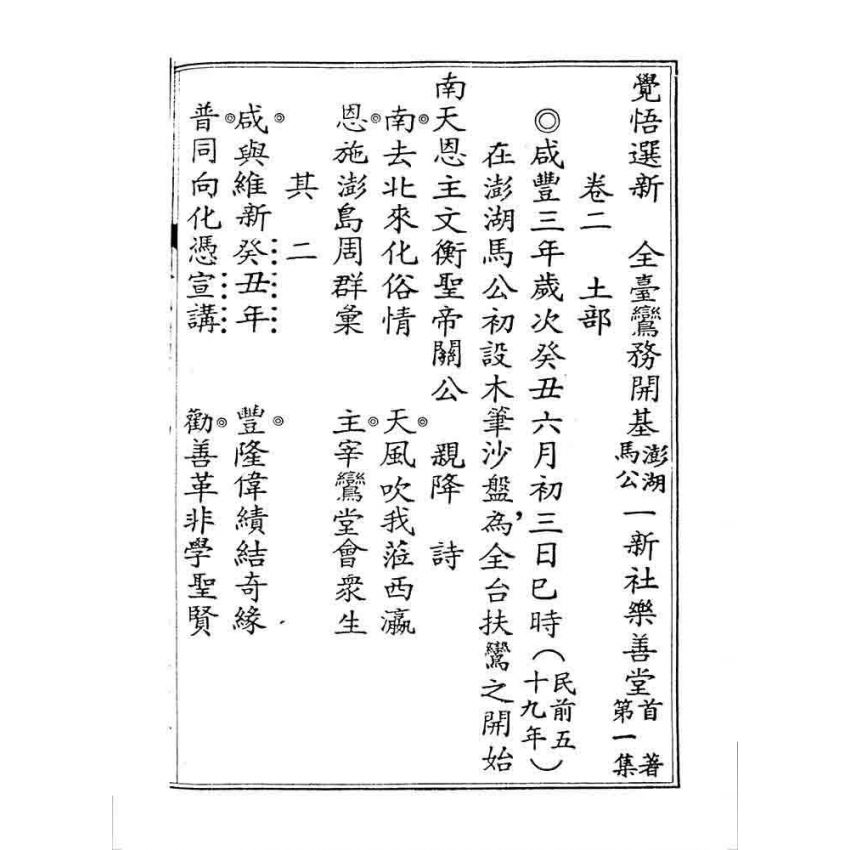 覺悟選新　全臺鸞務開基澎湖馬公一新社樂善堂首著第一集
卷二　土部
◎咸豐三年歲次癸丑六月初三日巳時（民前五十九年）
在澎湖馬公初設木筆沙盤，為全台扶鸞之開始
南天恩主文衡聖帝關公　親降　詩
南◎去北來化俗情　天◎風吹我蒞西瀛
恩◎施澎島周群彙　主◎宰鸞堂會眾生
其　二
咸◎與維新癸丑年　豐◎隆偉績結奇緣
普◎同向化憑宣講　勸◎善革非學聖賢